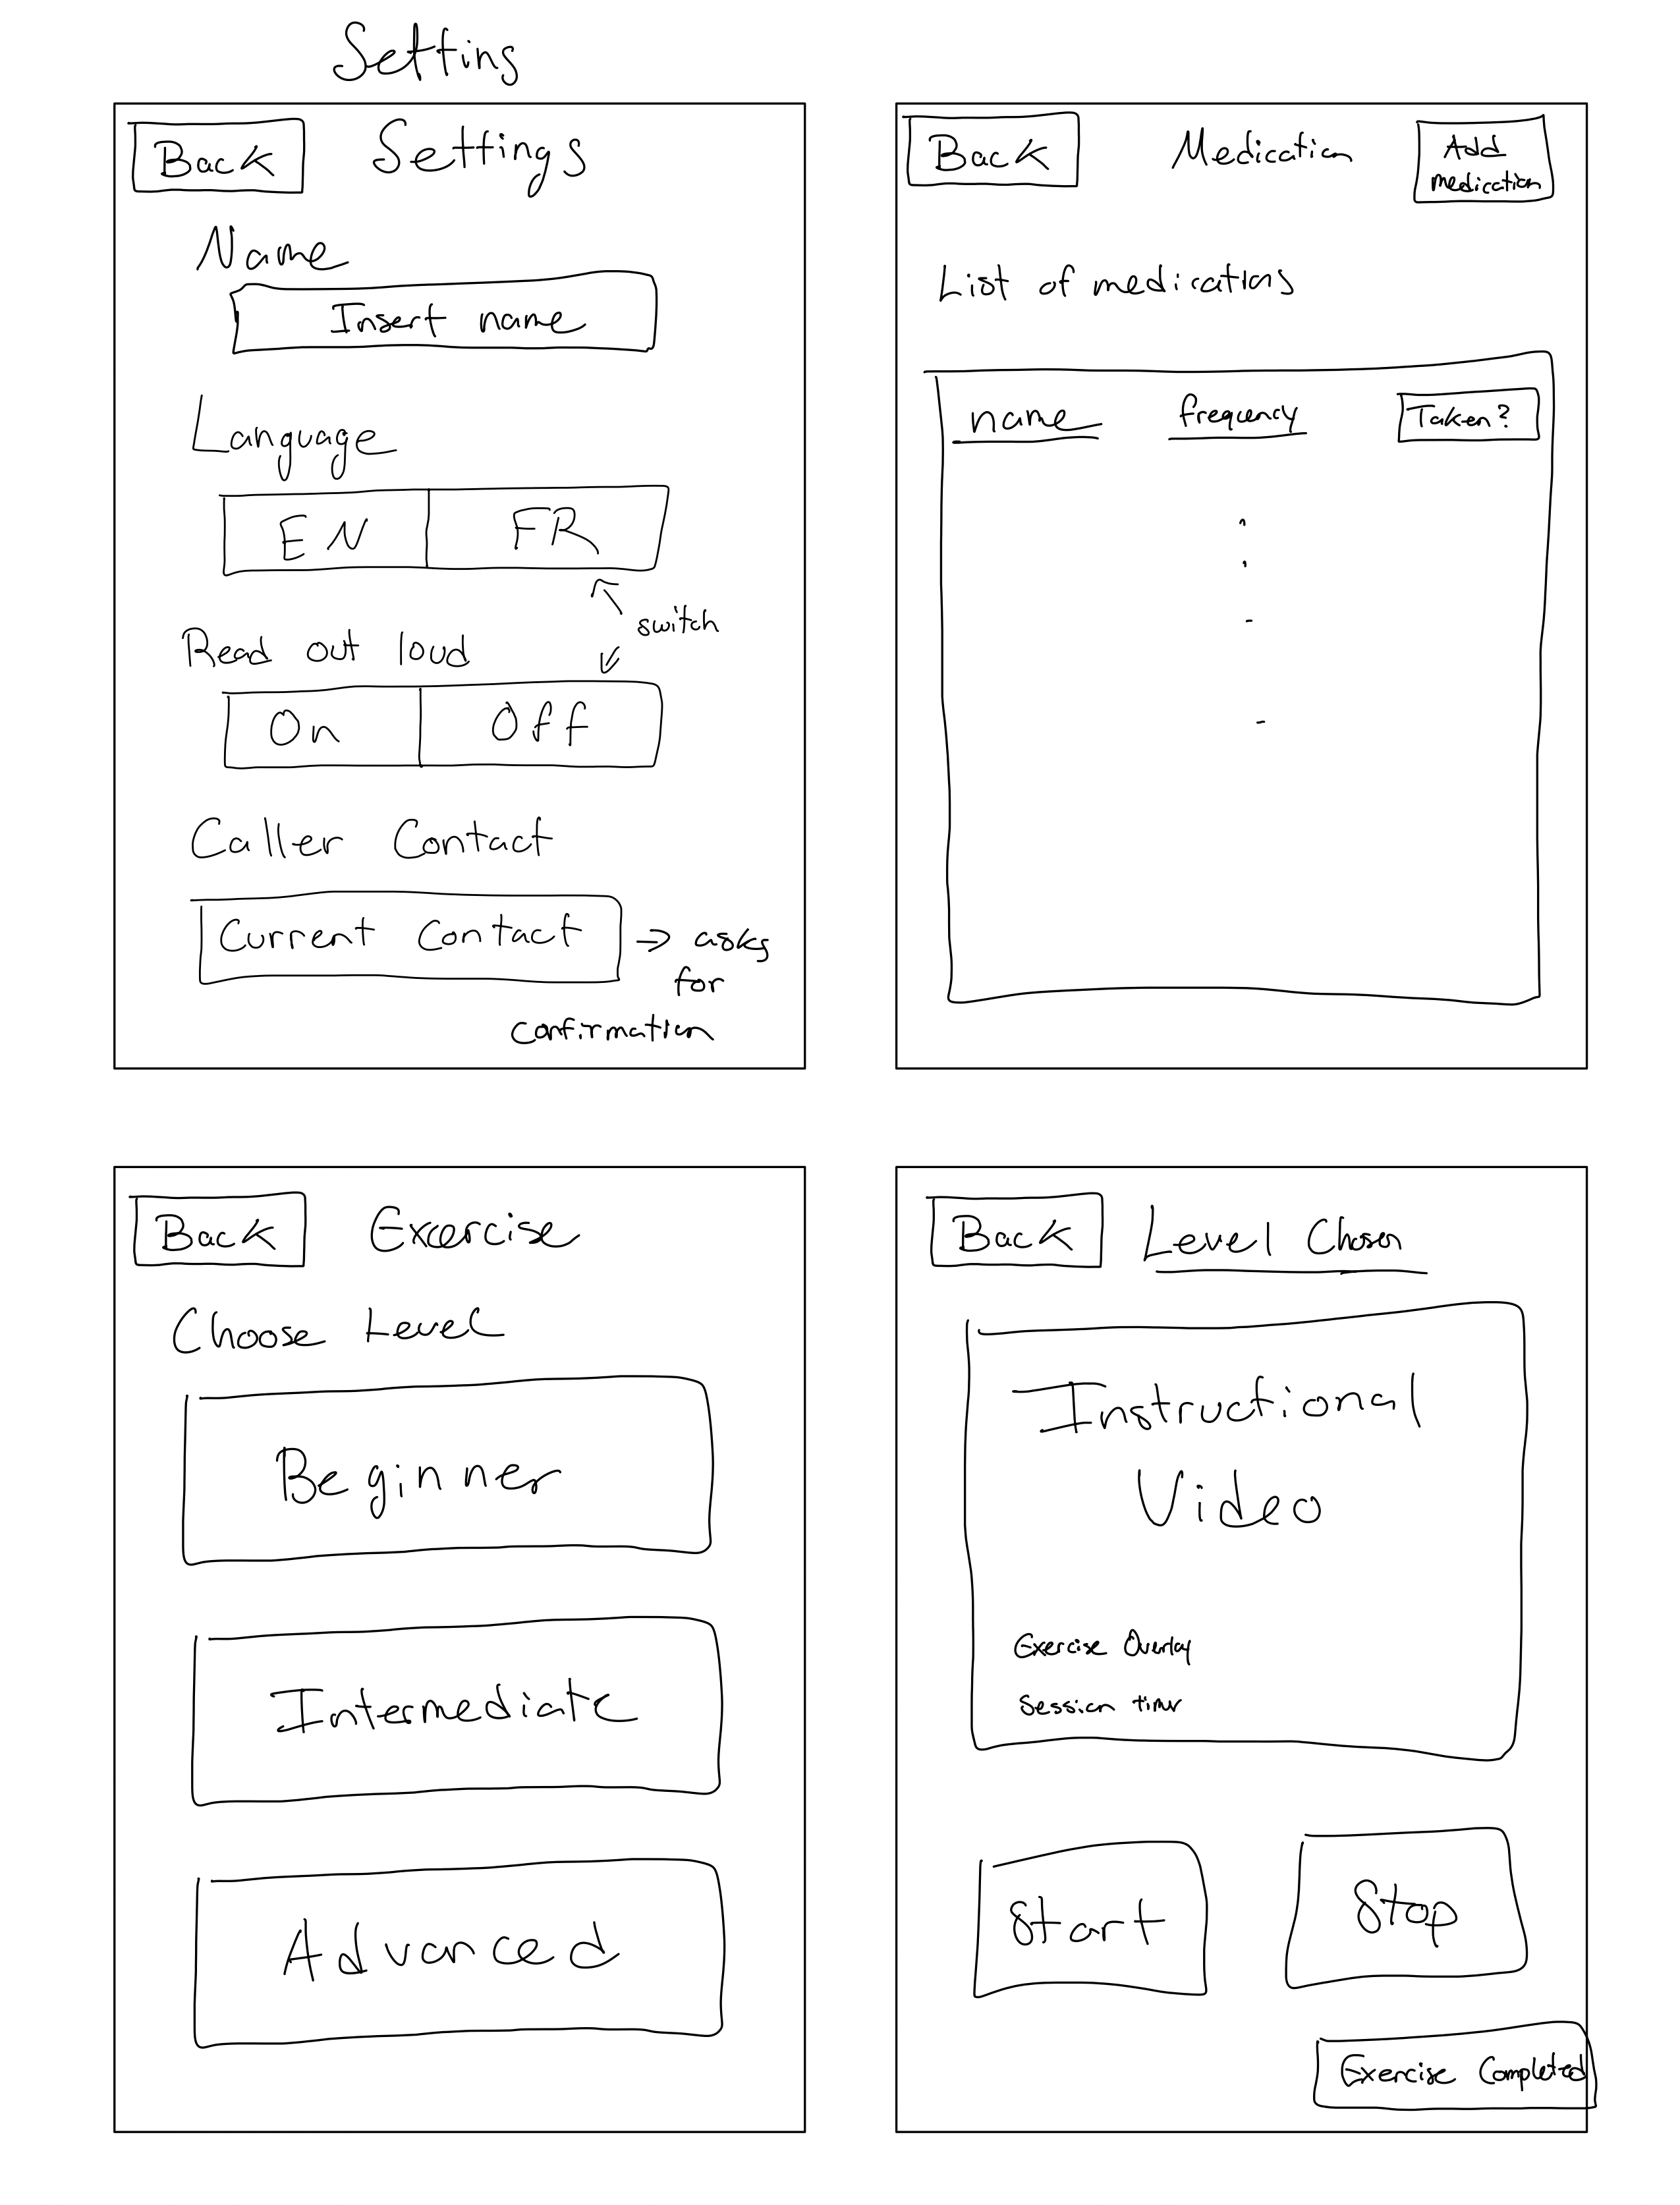 Setting
Back Settings
Name
Insert name
Language
EN FR
switch
Read out loud
On Off
Caller Contact
Current Contact → asks
for
confirmation
Back Medication Add
medication
List of medications
name frequency Taken?
Back Excercise
Choose Level
Beginner
Intermediate
Advanced
Back Level Chosen
Instructional
Video
Exercise Overlay
Session timer
Start Stop
Exercise Completed